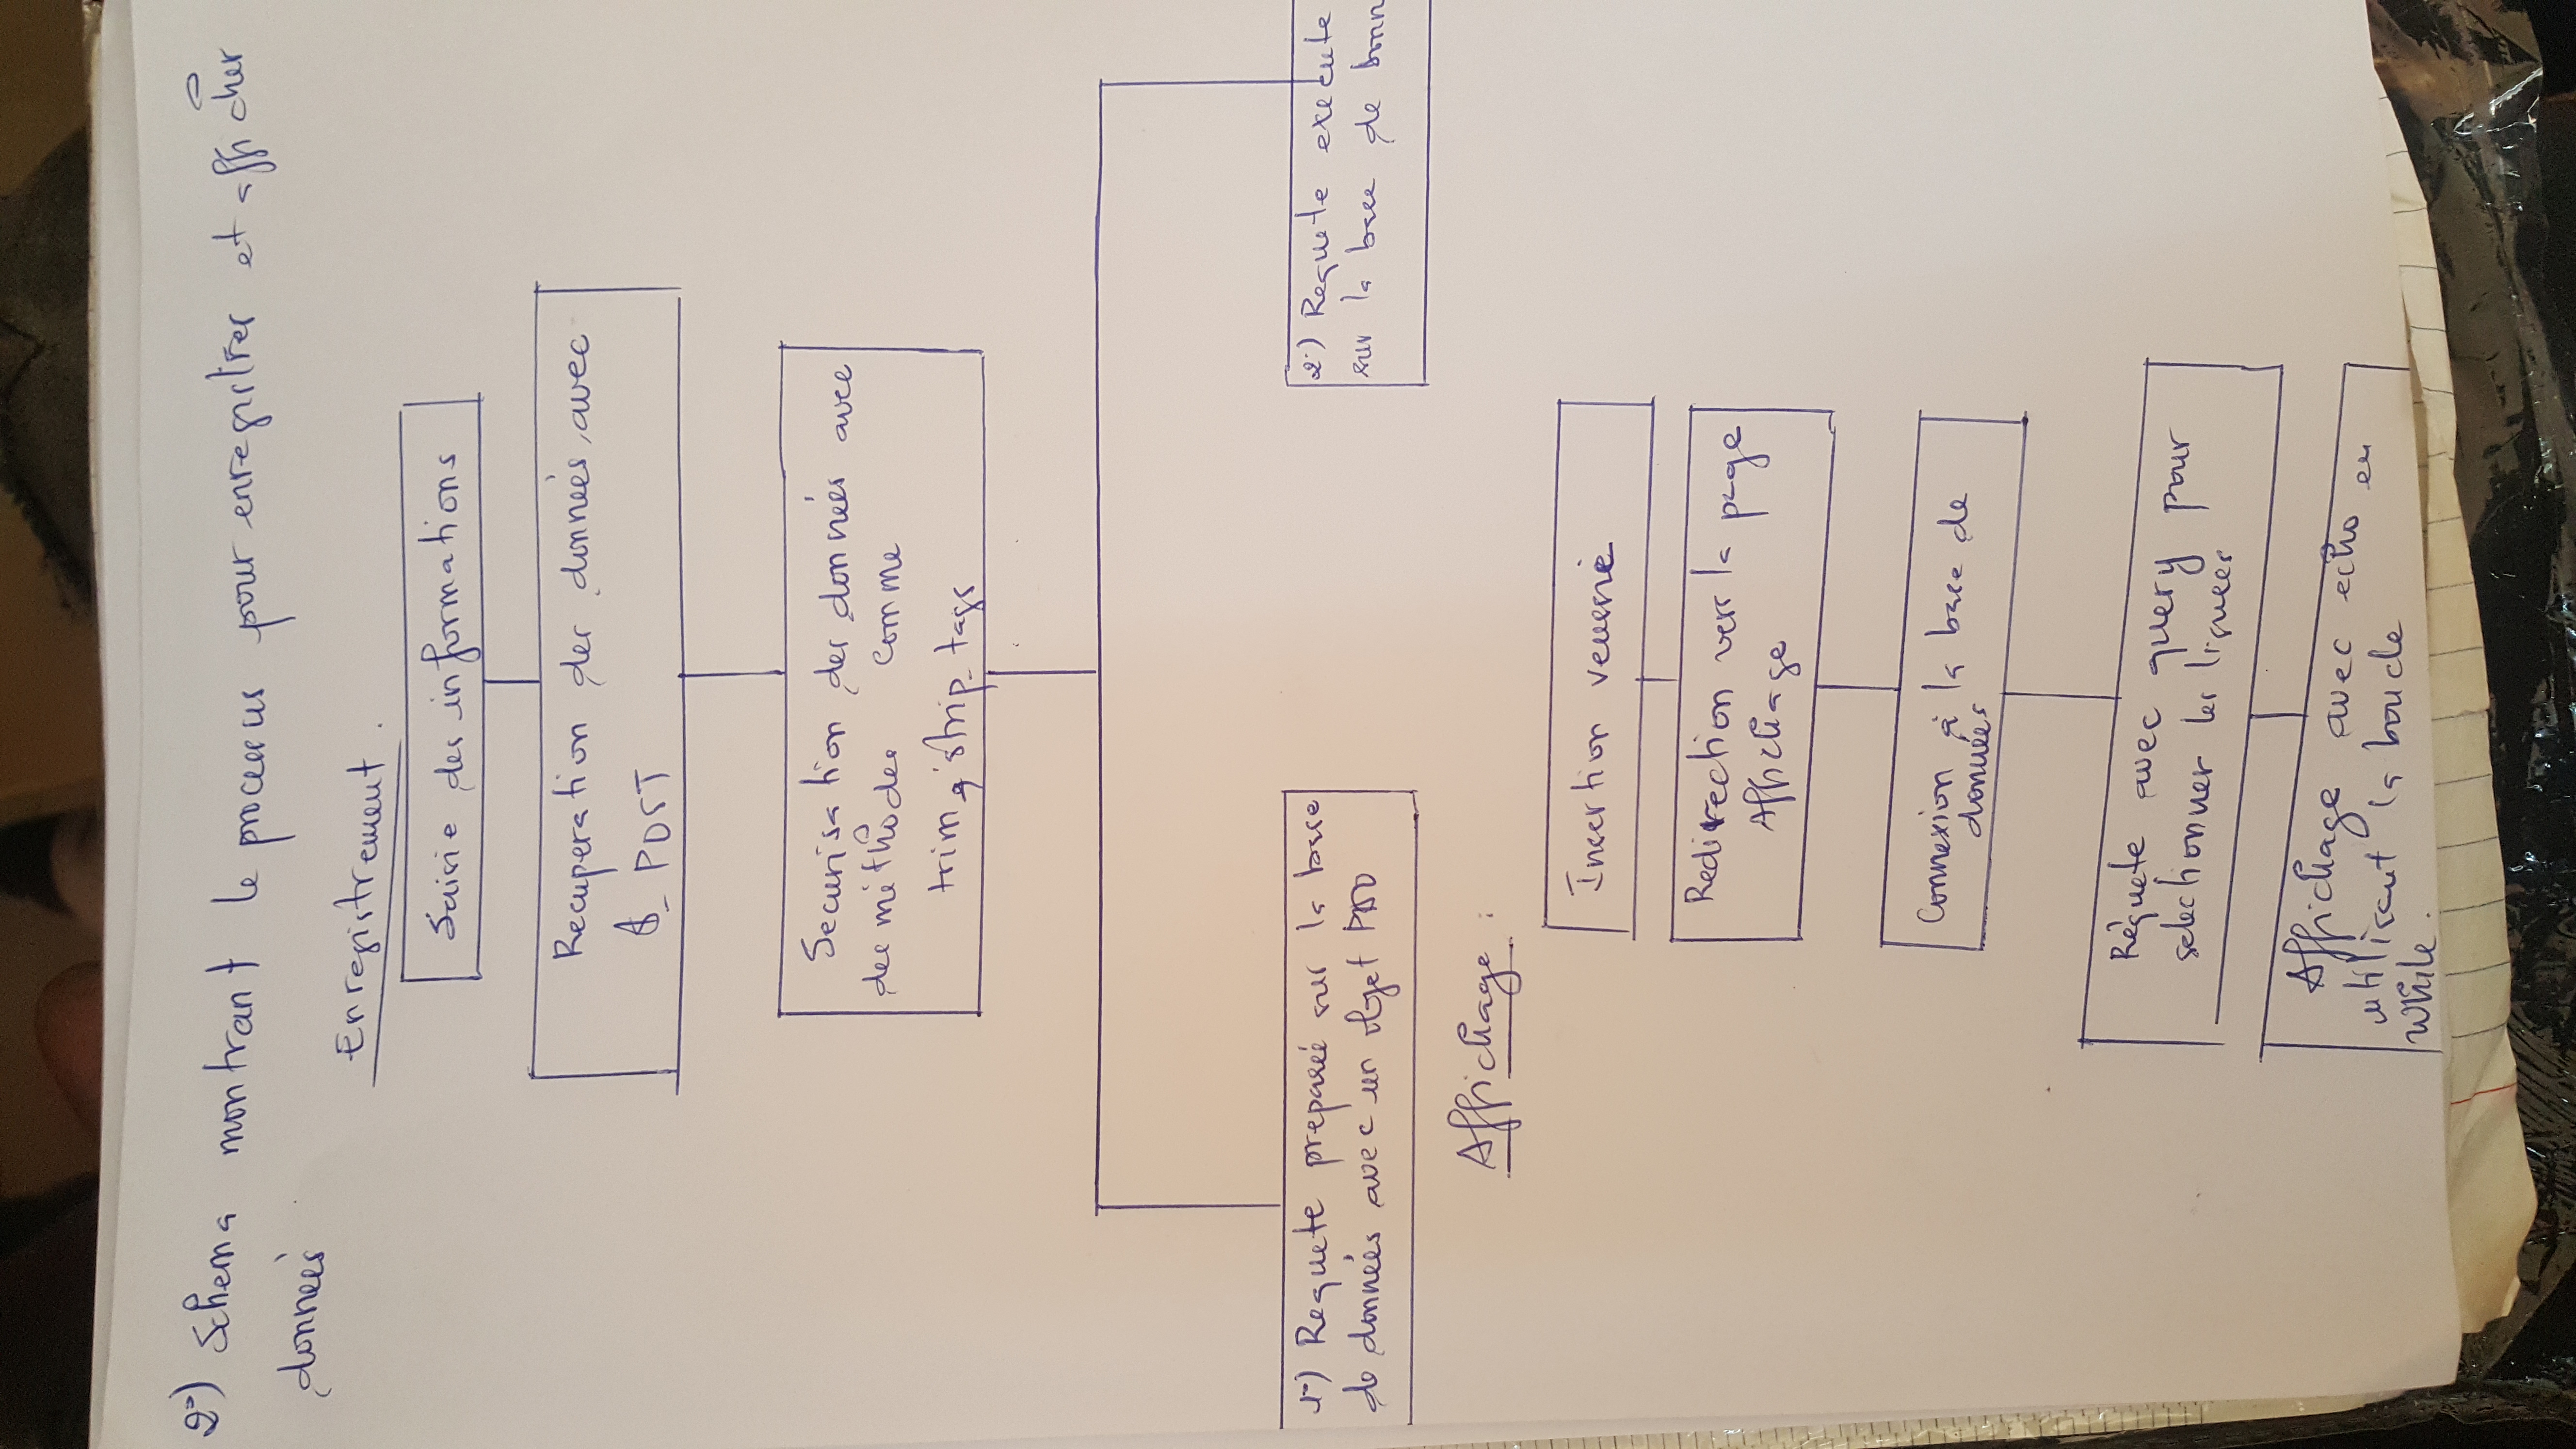 2°) Schema montrant le processus pour enregistrer et afficher
données
Enregistrement.
Saisie des informations
Recuperation des données avec
$_POST
Securisation des données avec
des méthodes comme
trim, strip_tags
1°) Requete preparée sur la base
de données avec un objet PDO
2°) Requete execute
sur la base de donn
Affichage :
Insertion
Redirection vers la page
Affichage
Connexion à la base de
données
Requete avec query pour
selectionner les
Affichage avec echo en
utilisant la boucle
while.